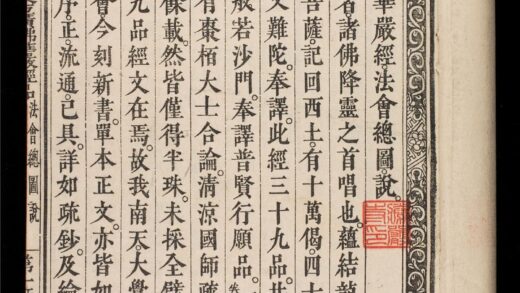 華嚴經。法會總圖。說
者諸佛降靈之首唱也。蘊結龍
菩薩。記回西土。有十萬偈。四十
又難陀。奉譯。此經三十九品。
般若沙門。奉譯普賢行願品。
有棗栢大士合論。清涼國師疏
保載。然皆僅得半珠。未採全
九品經文在焉。故我南天大覺
會今刻新書。單本正文。亦皆
序。正。流通。已具。詳如疏鈔。及
廣佛華嚴經品法會總圖說 第一